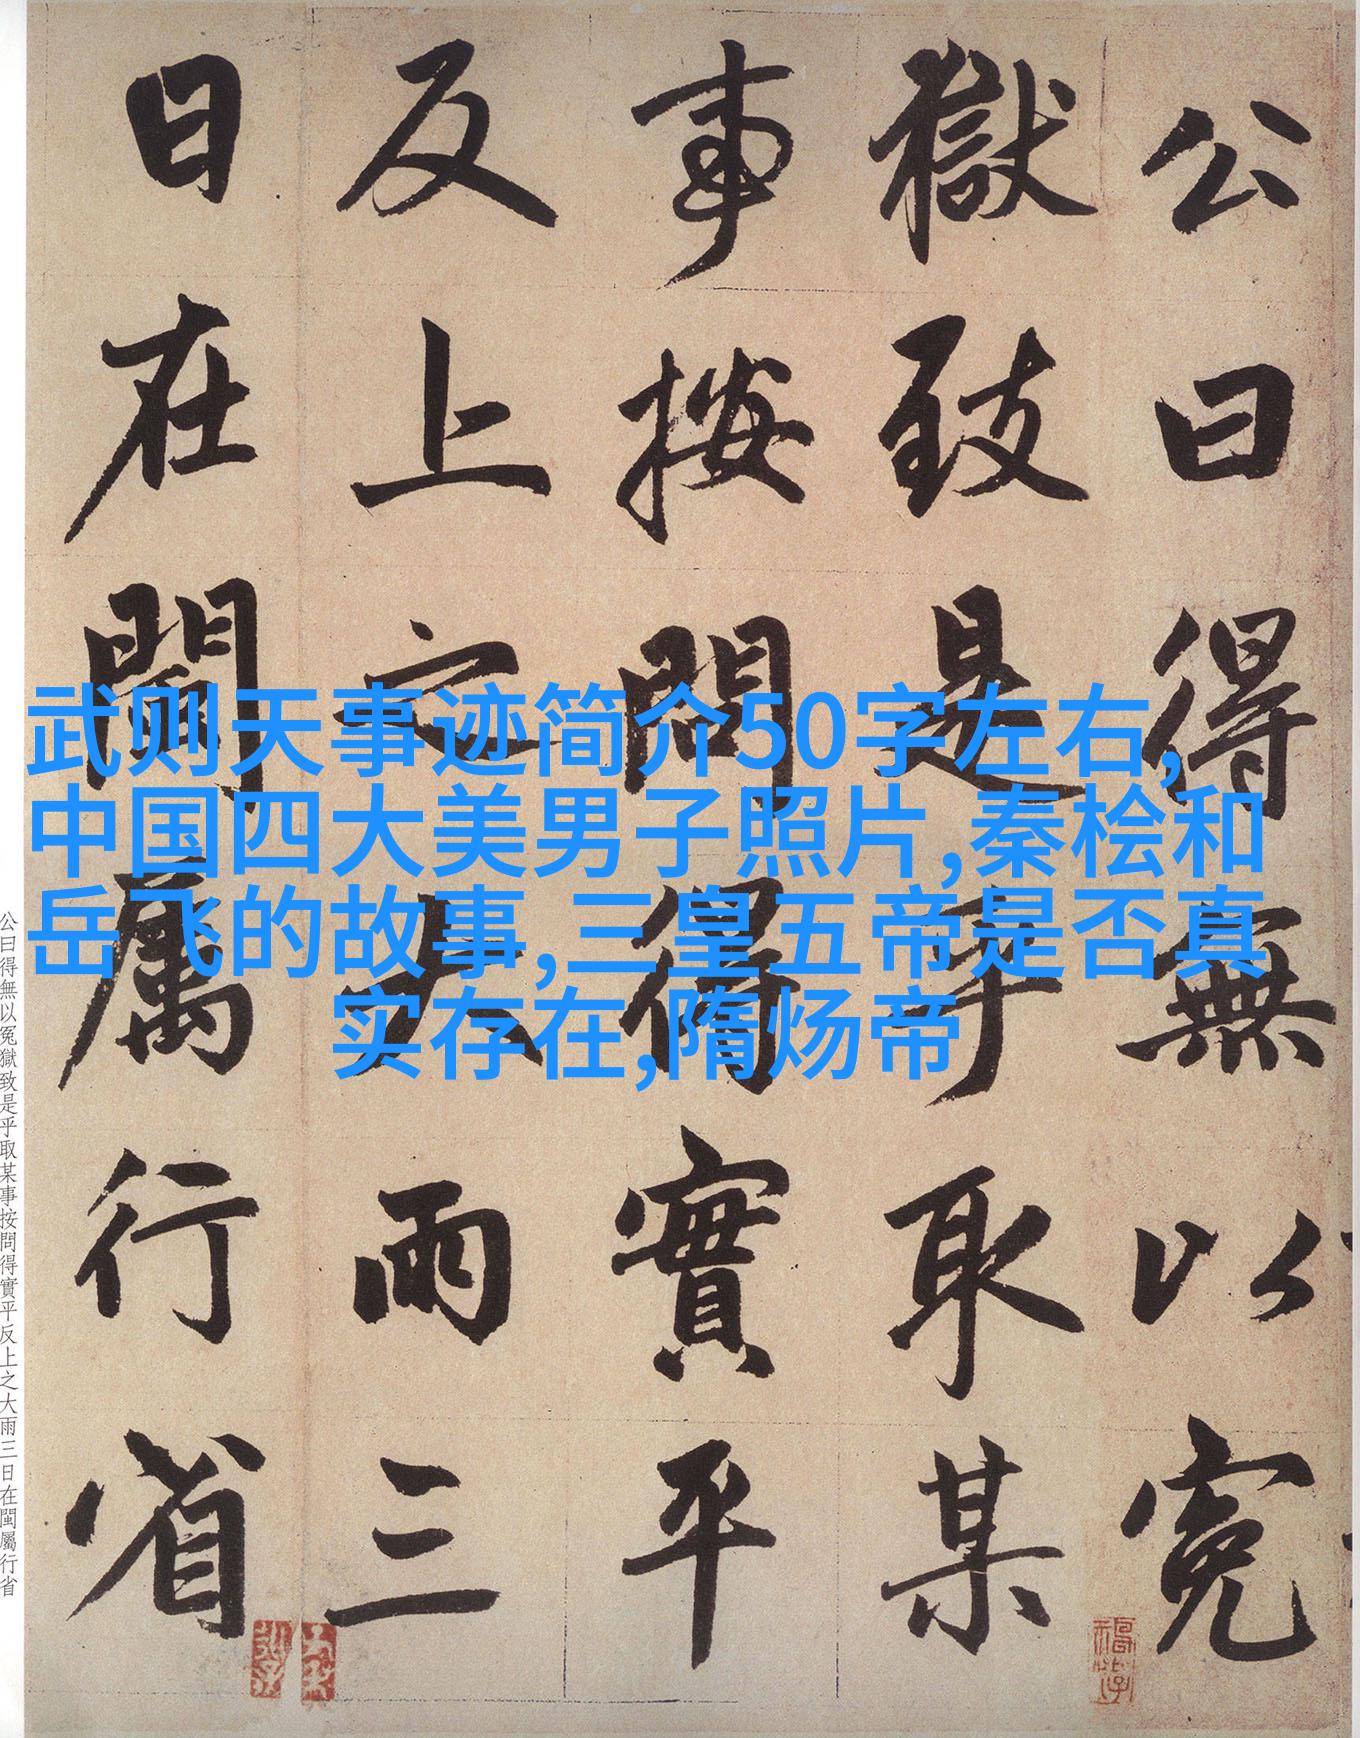 公曰得無以冤
獄致是乎取某
事按問得實平
反上之大雨三
日在閩屬行省
武则天事迹简介50字左右,
中国四大美男子照片,秦桧和
岳飞的故事,三皇五帝是否真
实存在,隋炀帝
公曰得無以冤獄致是乎取某事按問得實平反上之大雨三日在閩屬行省